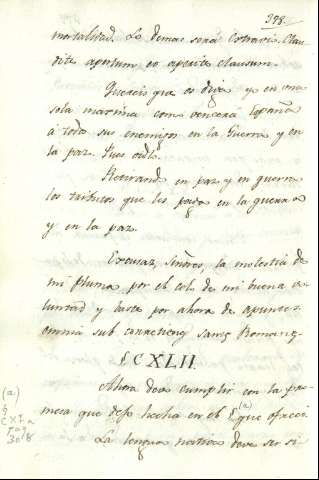 398.
mortalidad. Lo demas será extravio. Clau-
dite apertum et aperite clausum.
Quereis que os diga yo en una
sola maxima como vencerá España
á todos sus enemigos en la Guerra y en
la paz. Pues oid.
Retirando en paz y en guerra
los tributos que les paga en la guerra
y en la paz.
Excusaz, Señores, la molestia de
mi pluma por el celo de mi buena vo-
luntad y baste por ahora de apuntes
omnia sub correctione
§. CXLII.
Ahora devo cumplir con la pro-
mesa que dejo hecha en el § que ofreci
(a)
La lengua nativa deve ser si
(a)
§
CXIa
pag
308